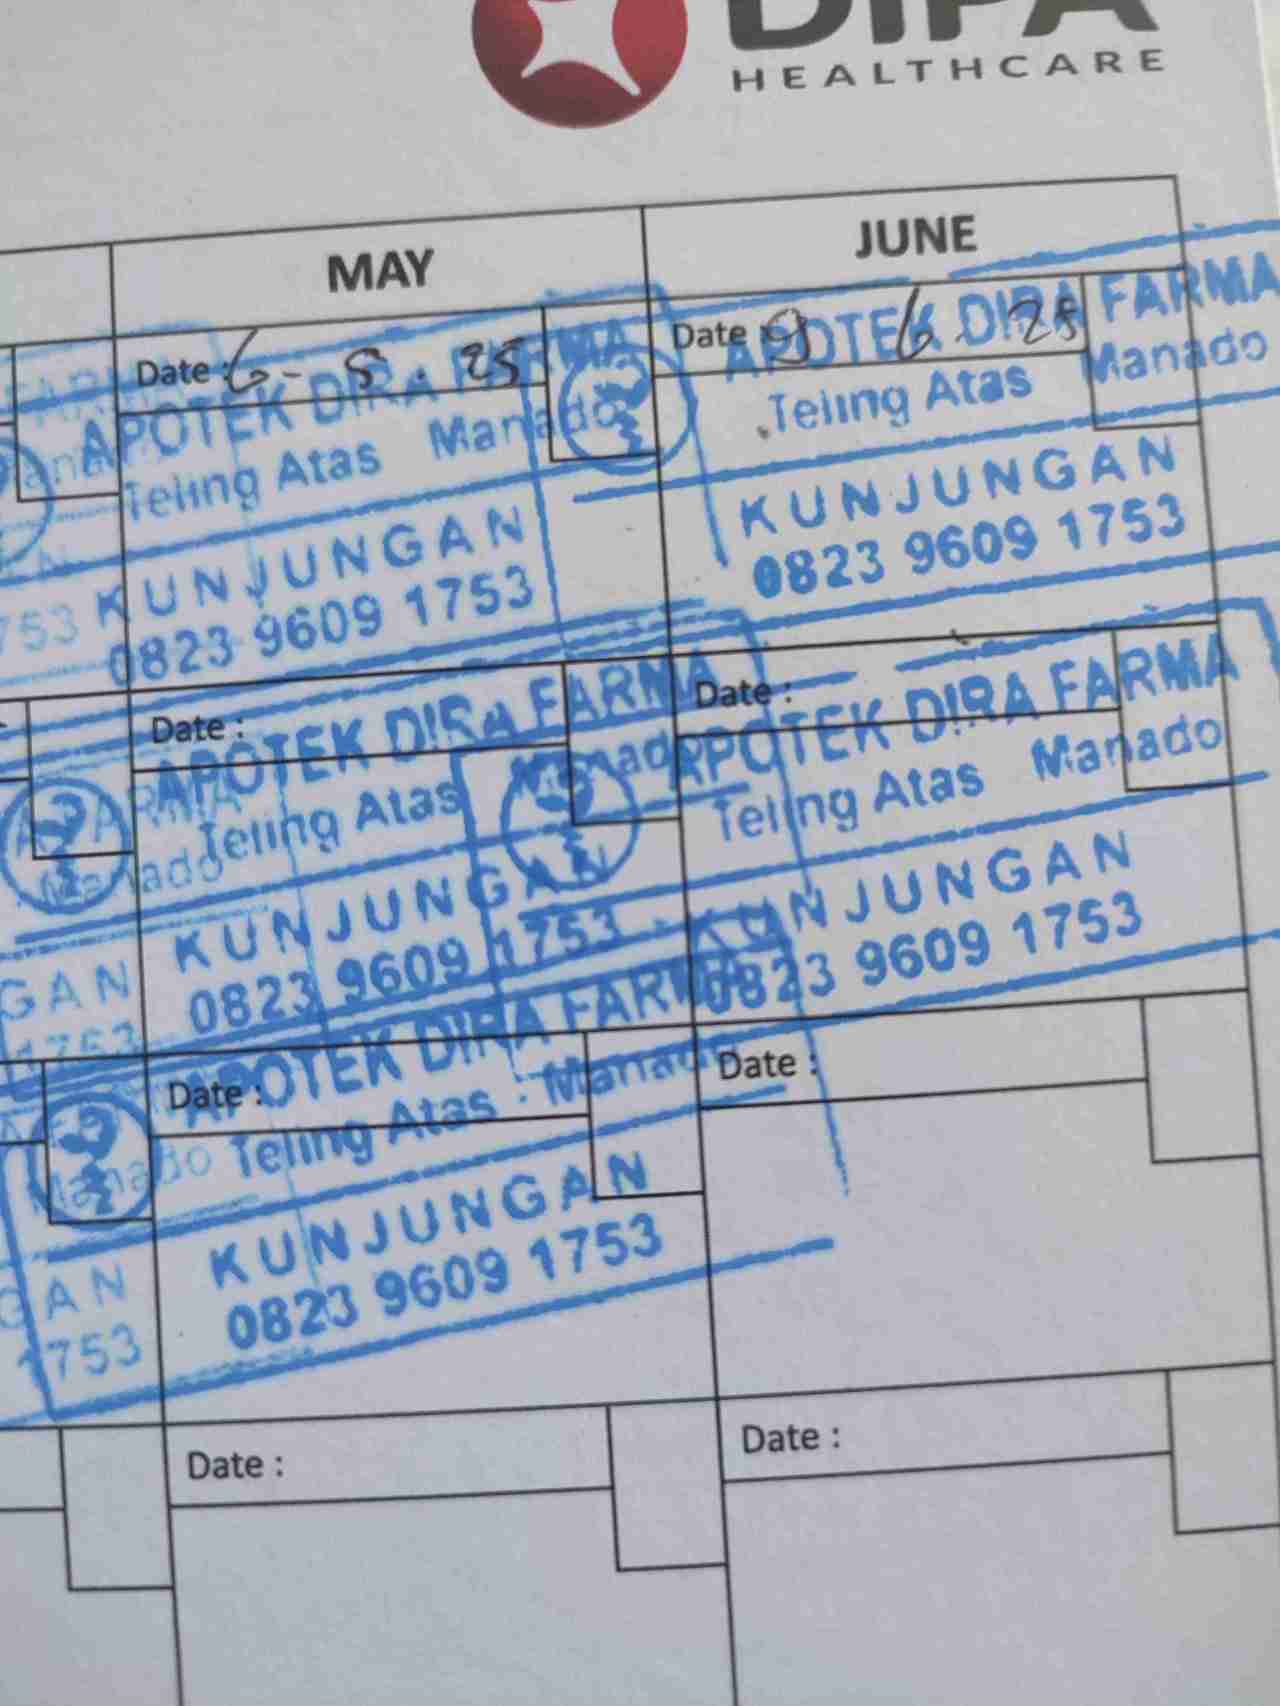 DIPA
HEALTHCARE
MAY
JUNE
Date : 6 - 5 . 25
APOTEK DIRA FARMA
Teling Atas Manado
KUNJUNGAN
0823 9609 1753
Date : 9 6 25
APOTEK DIRA FARMA
Teling Atas Manado
KUNJUNGAN
0823 9609 1753
753
Date :
APOTEK DIRA FARMA
Teling Atas Manado
KUNJUNGAN
0823 9609 1753
Date :
APOTEK DIRA FARMA
Teling Atas Manado
KUNJUNGAN
0823 9609 1753
Manado
GAN
1753
Date :
APOTEK DIRA FARMA
Teling Atas Manado
KUNJUNGAN
0823 9609 1753
Date :
Manado
GAN
1753
Date :
Date :